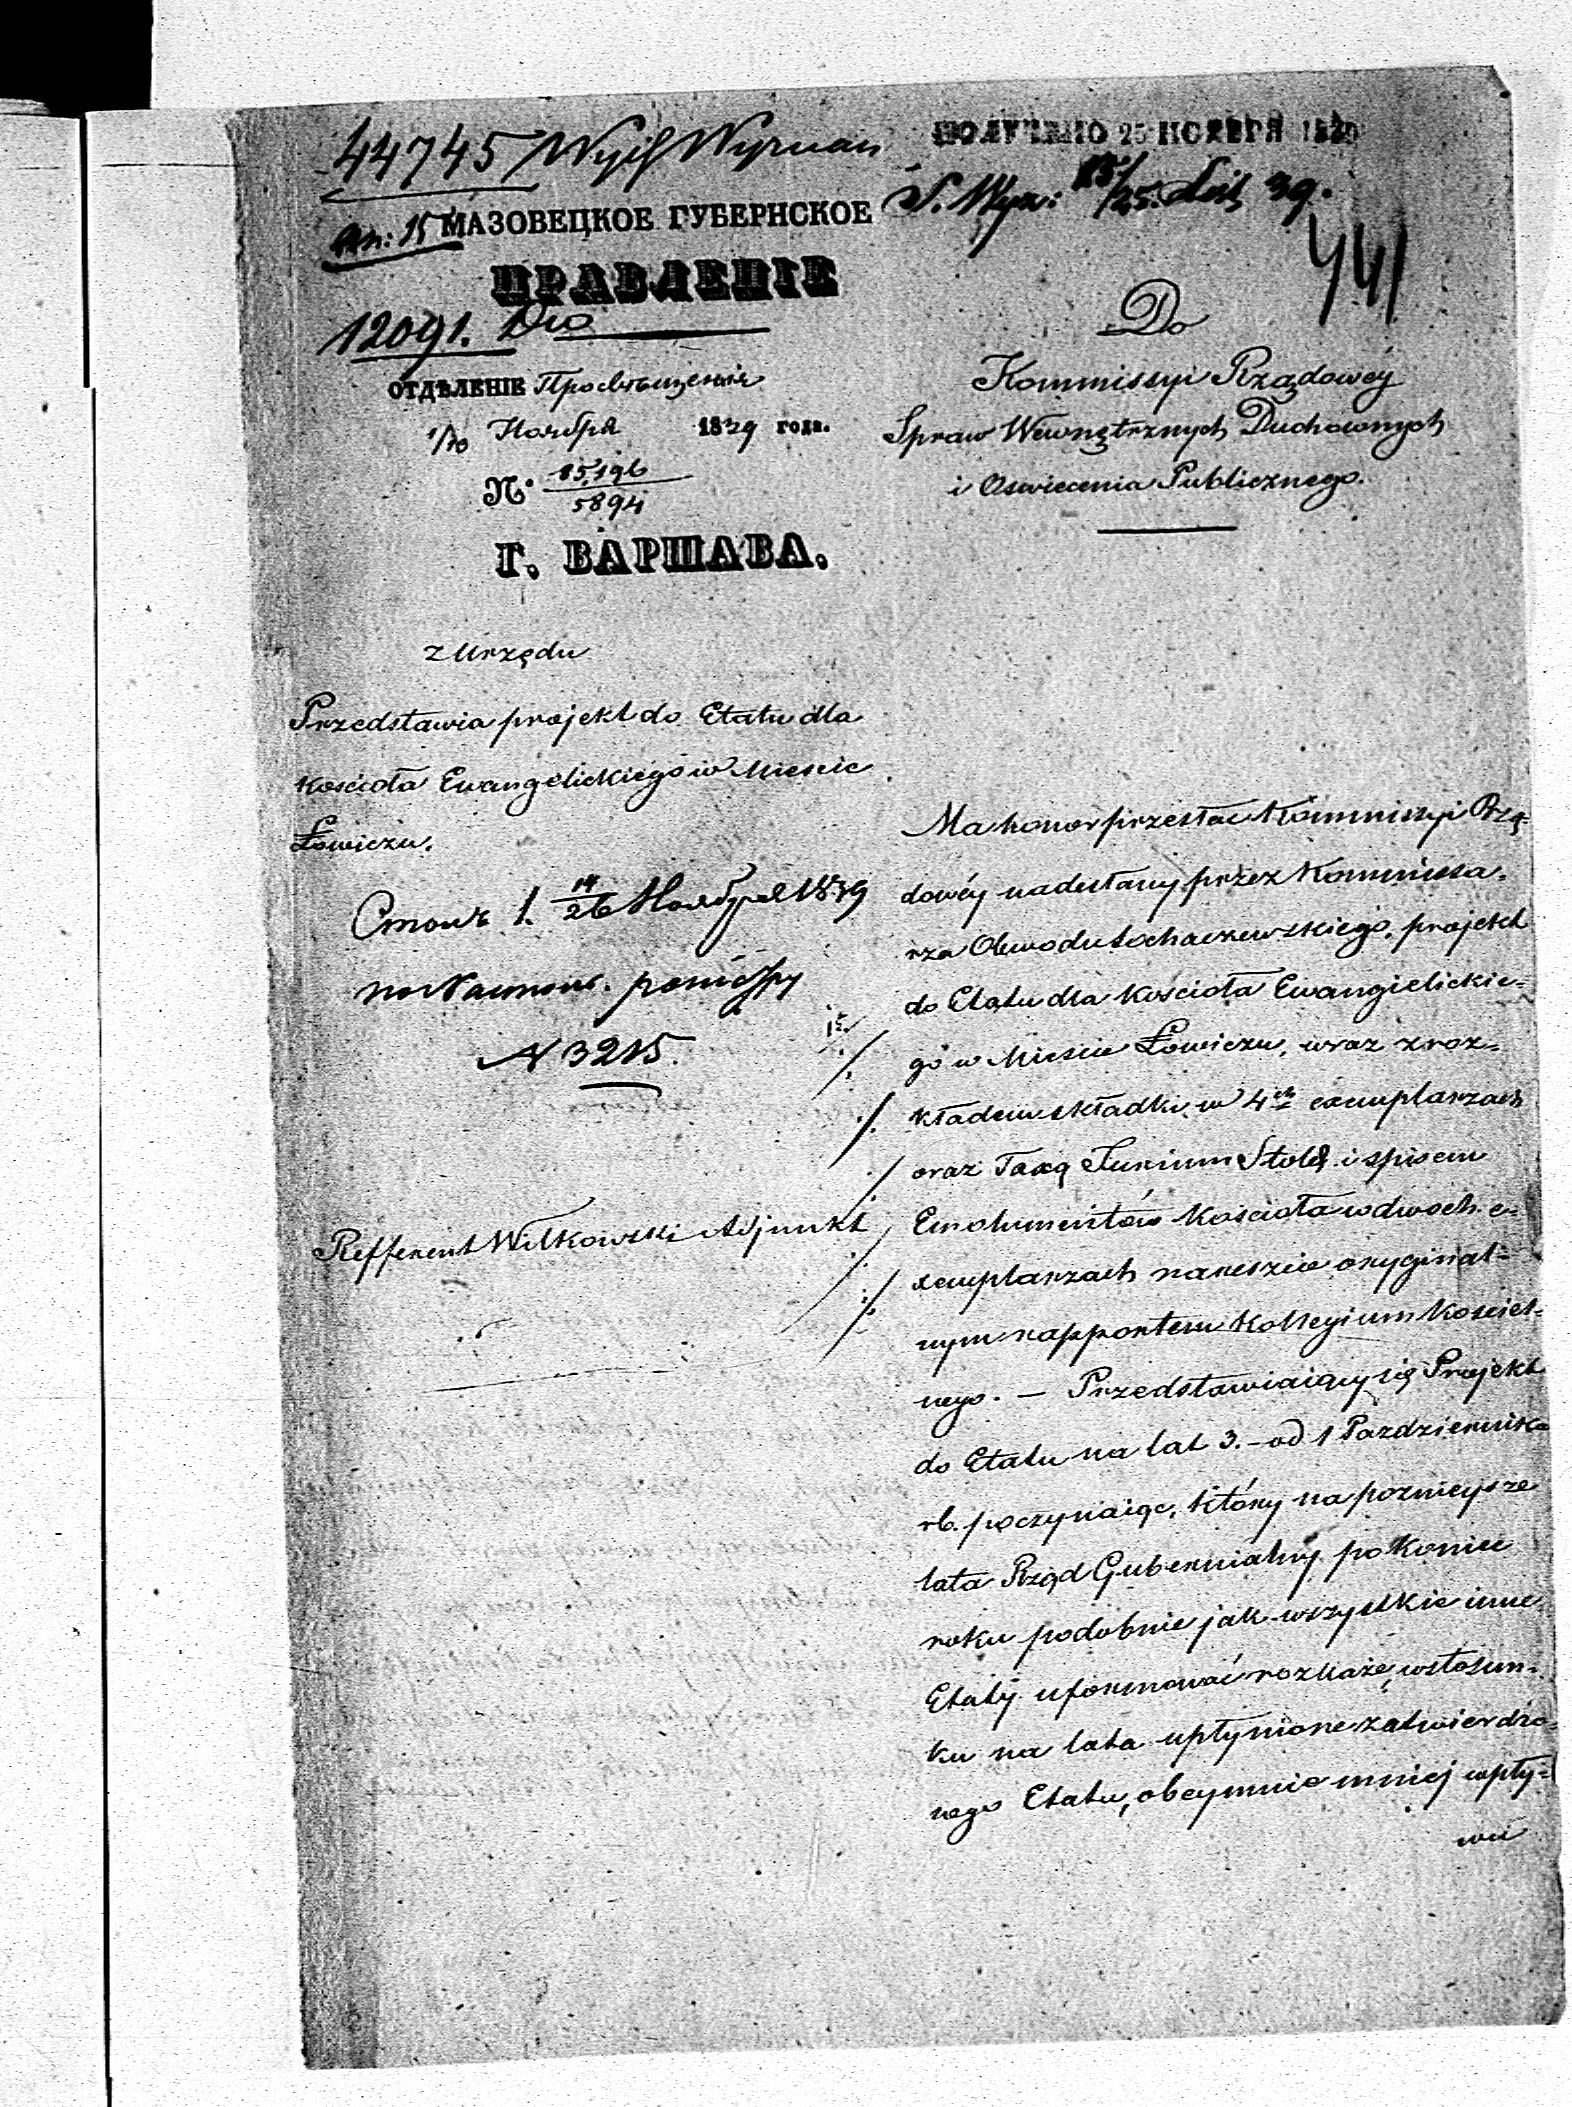 44745
ПОЛУЧЕНО 25 НОЯБРЯ 1839
МАЗОВЕЦКОЕ ГУБЕРНСКОЕ
ПРАВЛЕНІЕ
12091.
ОТДѢЛЕНІЕ Просвѣщенія
1/10 Ноября 1839 года.
N° 85,196
5894
Г. ВАРШАВА.
441
Do
Kommissyi Rządowéy
Spraw Wewnętrznych Duchownych
i Oswiecenia Publicznego.
z Urzędu
Przedstawia projekt do Etatu dla
Kościoła Ewangelickiego w Miescie
Łowiczu.
14/26 Ноября 1839
N 3215.
Refferent Wilkowski Adjunkt
Ma honor przesłac Kommissyi Rzą=
dowéy nadesłany przez Kommissa-
rza Obwodu Sochaczewskiego, projekt
do Etatu dla Kościoła Ewangielickie=
go w Miescie Łowiczu, wraz z roz=
kładem składki w 4ch exemplarzach
oraz Taxą Jurium Stolæ i spisem
Emolumentów Kościoła w dwoch e-
xemplarzach nareszcie oryginal=
nym rapportem Kollegium Kościel-
nego. — Przedstawiaiący się Projekt
do Etatu na lat 3. - od 1 Pazdziernika
rb. poczynaiąc, który na poznieysze
lata Rząd Gubernialny po koniec
roku podobnie jak wszystkie inne
Etaty uformować rozkaże, w stosun-
ku na lata upłynione zatwierdzo-
nego Etatu, obeymuie mniej wpły=
wu